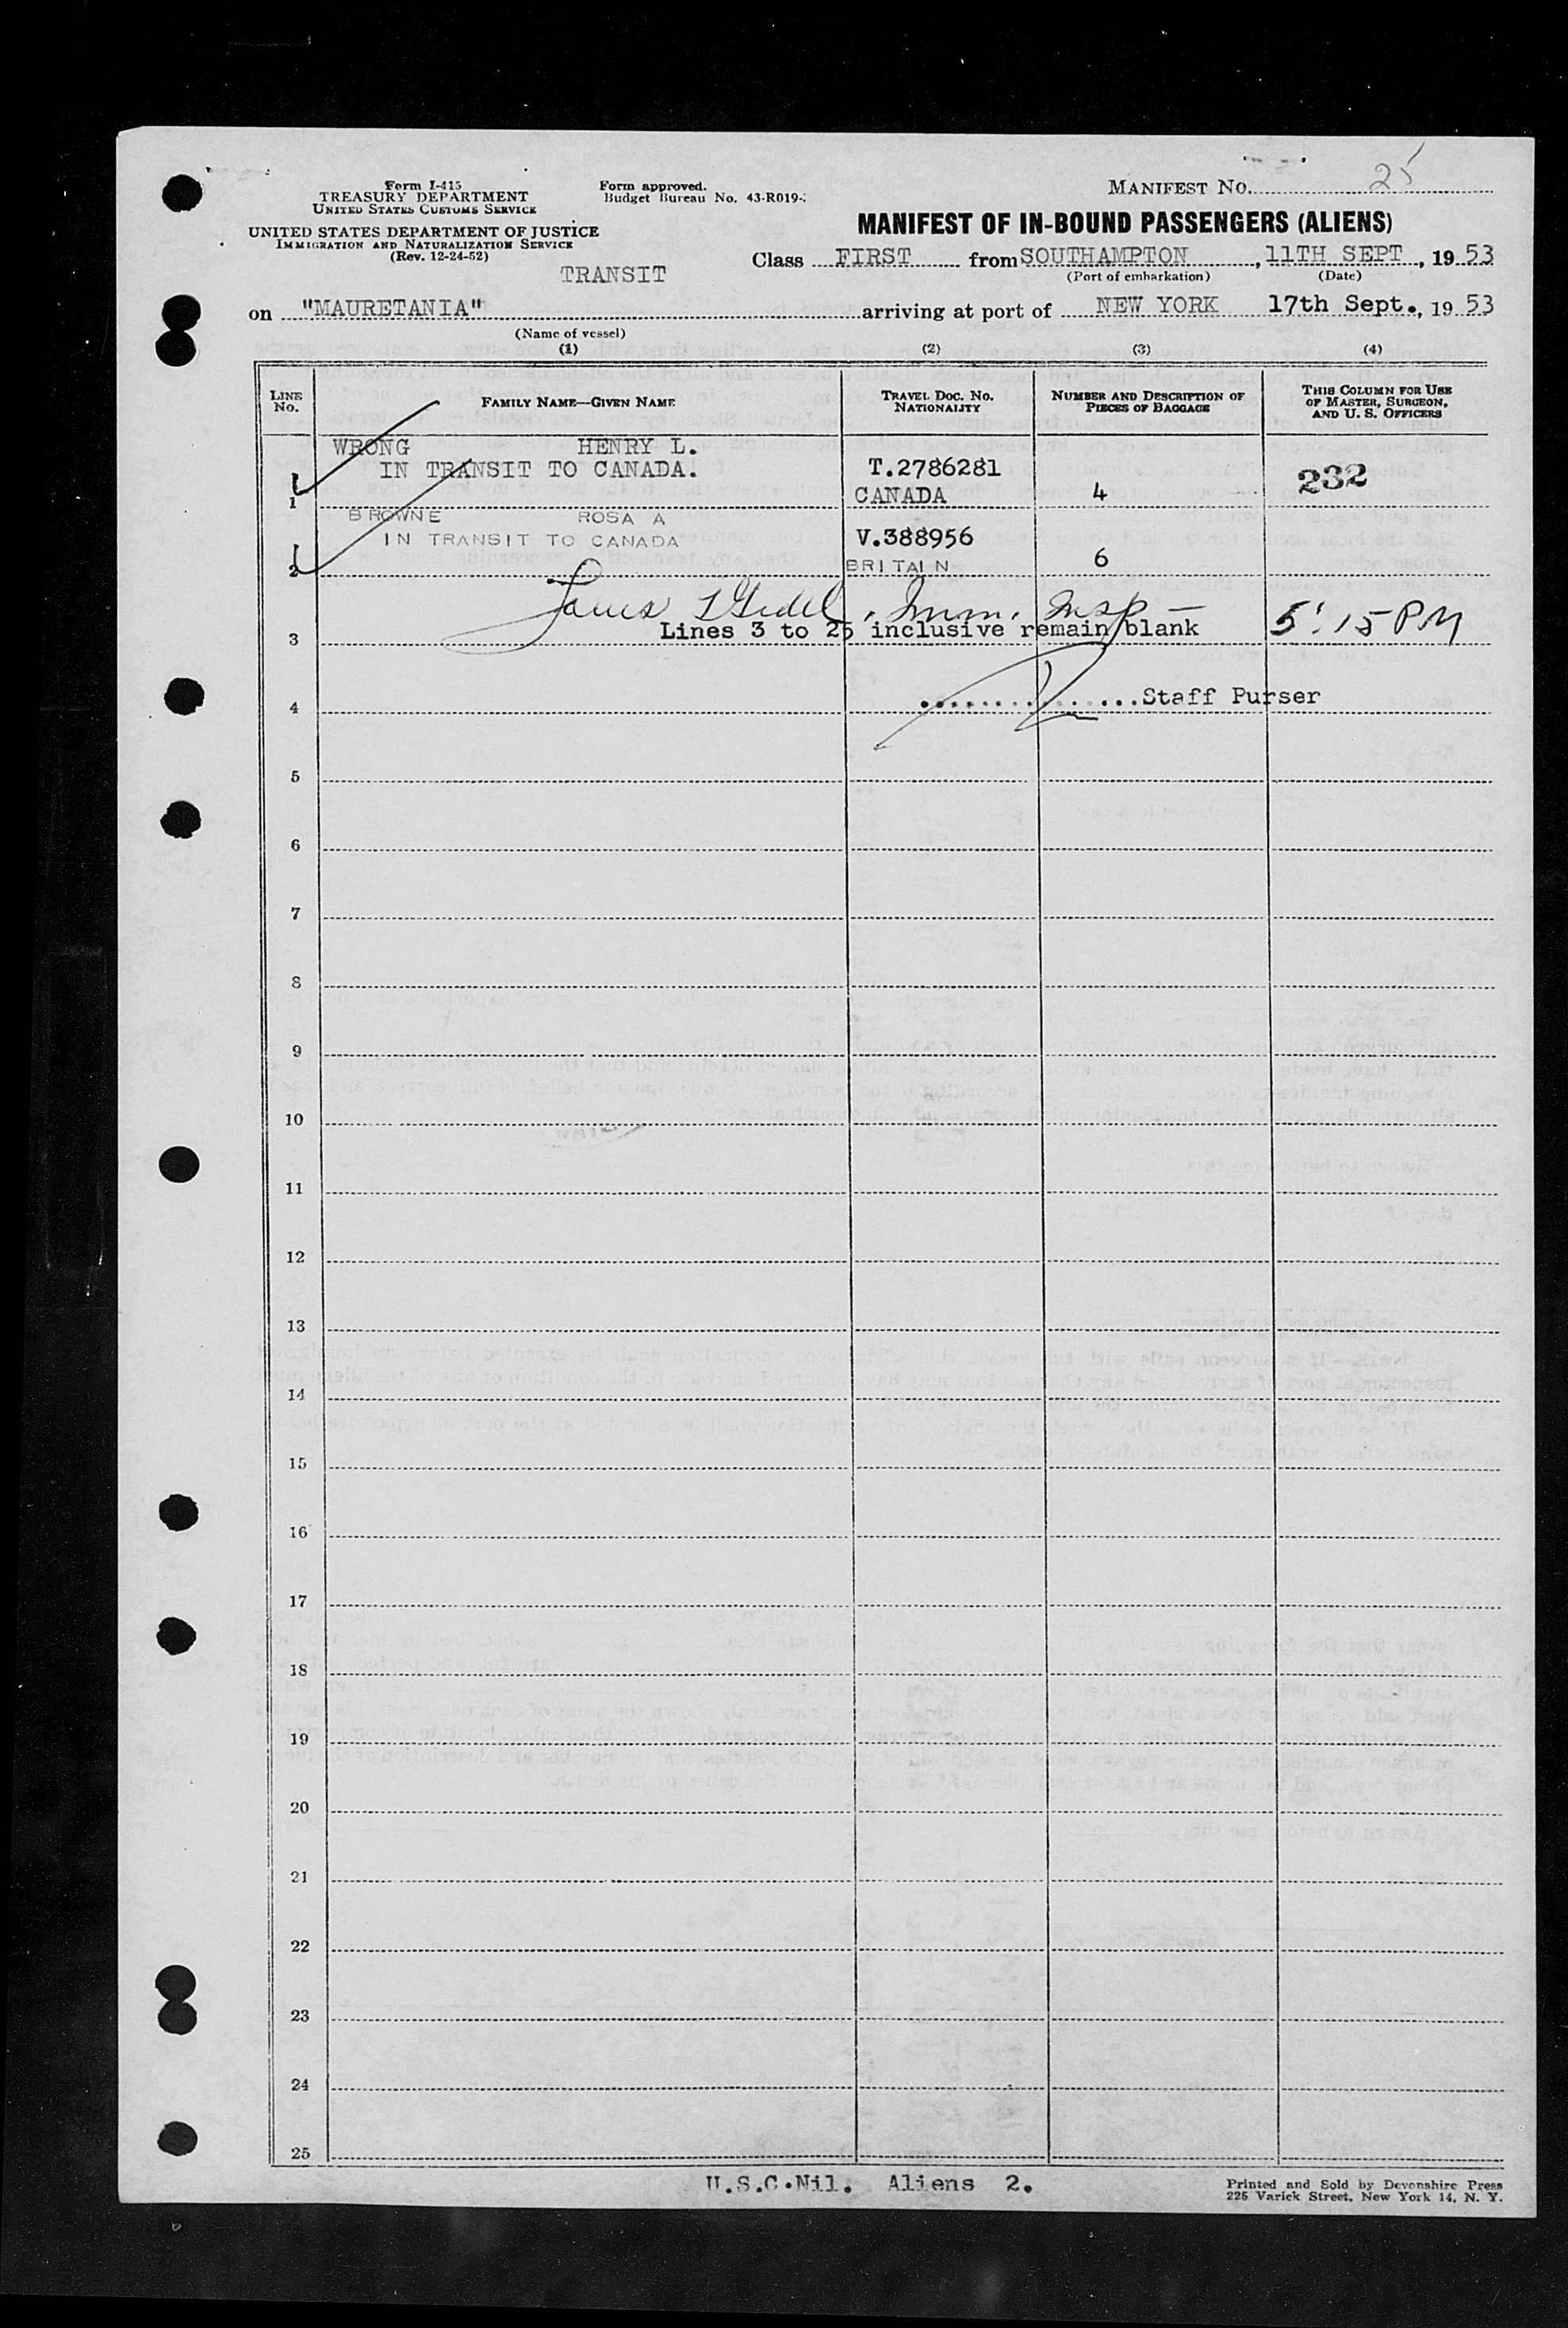 Form I-415
TREASURY DEPARTMENT
UNITED STATES CUSTOMS SERVICE
Form approved.
Budget Bureau No. 43-R019-
MANIFEST NO. 25
UNITED STATES DEPARTMENT OF JUSTICE
IMMIGRATION AND NATURALIZATION SERVICE
(Rev. 12-24-52)
MANIFEST OF IN-BOUND PASSENGERS (ALIENS)
TRANSIT
Class FIRST from SOUTHAMPTON, 11TH SEPT, 19 53
(Port of embarkation) (Date)
on "MAURETANIA" arriving at port of NEW YORK 17th Sept., 19 53
(Name of vessel)
(1) (2) (3) (4)
LINE No. FAMILY NAME—GIVEN NAME TRAVEL DOC. NO. NATIONALITY NUMBER AND DESCRIPTION OF PIECES OF BAGGAGE THIS COLUMN FOR USE OF MASTER, SURGEON, AND U. S. OFFICERS
WRONG HENRY L.
IN TRANSIT TO CANADA. T.2786281 232
1 CANADA 4
BROWNE ROSA A
IN TRANSIT TO CANADA V.388956
2 BRITAIN 6
Imm. Insp — 5:15 PM
3 Lines 3 to 25 inclusive remain blank
4 Staff Purser
5
6
7
8
9
10
11
12
13
14
15
16
17
18
19
20
21
22
23
24
25
U.S.C.Nil. Aliens 2.
Printed and Sold by Devonshire Press
225 Varick Street, New York 14, N. Y.